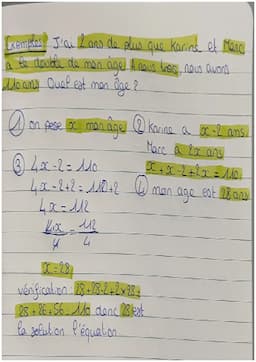 Exemples J'ai 2 ans de plus que Karine et Marc
a le double de mon âge. A nous trois, nous avons
110 ans. Quel est mon âge ?
① on pose x mon âge ② Karine a x-2 ans
Marc a 2x ans
③ 4x-2=110 x+x-2+2x=110
4x-2+2=110+2 ④ mon age est 28 ans
4x=112
4x/4 = 112/4
x=28
vérification: 28+28-2+2×28=
28+26+56=110 donc 28 est
la solution l'équation